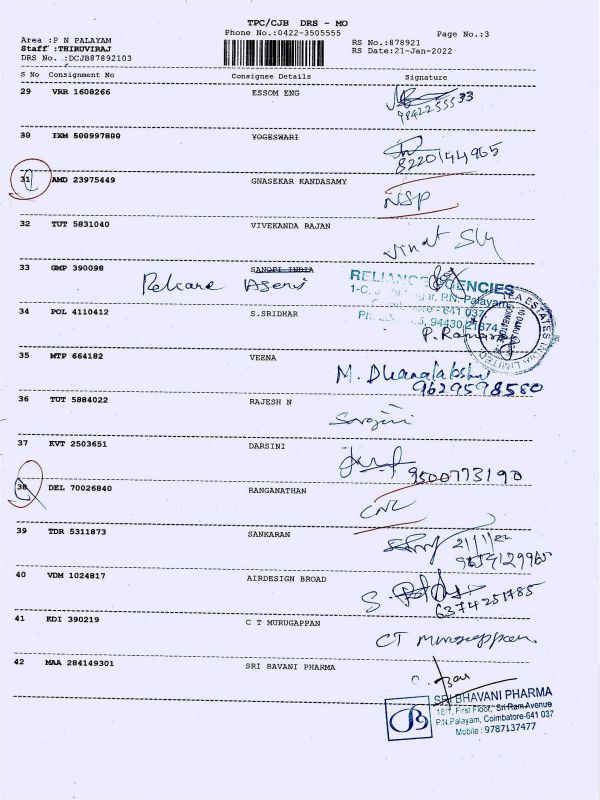 TPC/CJB DRS - MO
Phone No.:0422-3505555
Page No.:3
Area :P N PALAYAM
Staff :THIRUVIRAJ
DRS No. :DCJB87892103
RS No.:878921
RS Date:21-Jan-2022
S No Consignment No Consignee Details Signature
29 VRR 1608266 ESSOM ENG
9842255533
30 IXM 500997880 YOGESWARI
8220144965
31 AMD 23975449 GNASEKAR KANDASAMY
NSP
32 TUT 5831040 VIVEKANDA RAJAN
33 GMP 390098 SANOFI INDIA
RELIANCE AGENCIES
P.N. Palayam
641 037
94430 21874
34 POL 4110412 S.SRIDHAR
TEA ESTATES INDIA LIMITED
35 MTP 664182 VEENA
M. Dhanalakshmi
9629598580
36 TUT 5884022 RAJESH N
Sarojini
37 KVT 2503651 DARSINI
9500773190
38 DEL 70026840 RANGANATHAN
CNL
39 TDR 5311873 SANKARAN
21/1/22
40 VDM 1024817 AIRDESIGN BROAD
6374251785
41 KDI 390219 C T MURUGAPPAN
CT Murugappan
42 MAA 284149301 SRI BAVANI PHARMA
SRI BHAVANI PHARMA
First Floor, Sri Ram Avenue
P.N.Palayam, Coimbatore-641 037
Mobile : 9787137477